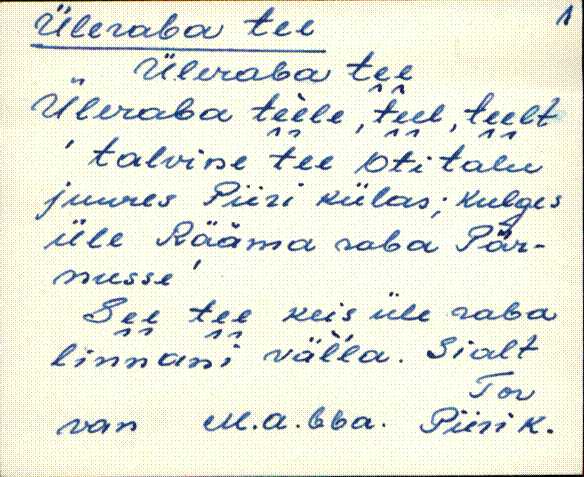 Üleraba tee 1
Üleraba tee
Üleraba tèele, teel, teelt
' talvine tee Oti talu
juures Piiri külas; kulges
üle Rääma raba Pär-
nusse '
See tee keis üle raba
linnani väl̀la. Sialt
Tor
van M.a. 66a. Piiri k.